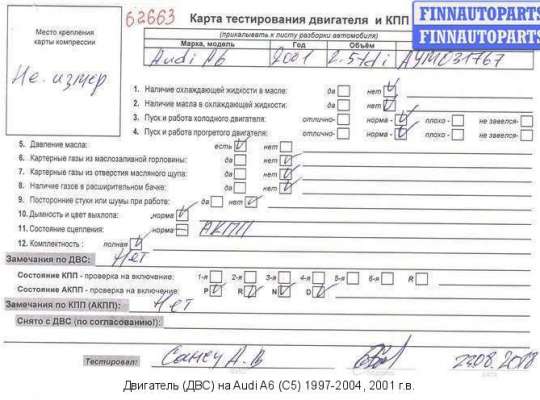 62663 Карта тестирования двигателя и КПП
FINNAUTOPARTS
FINNAUTOPARTS
Место крепления карты компрессии
(прикалывать к листу разборки автомобиля)
Марка, модель Год Объём
Audi A6 2001 2.5tdi AYM031767
Не измер
1. Наличие охлаждающей жидкости в масле: да нет
2. Наличие масла в охлаждающей жидкости: да нет
3. Пуск и работа холодного двигателя: отлично- норма - плохо - не завелся-
4. Пуск и работа прогретого двигателя: отлично- норма - плохо - не завелся-
5. Давление масла: есть нет
6. Картерные газы из маслозаливной горловины: да нет
7. Картерные газы из отверстия масляного щупа: да нет
8. Наличие газов в расширительном бачке: да нет
9. Посторонние стуки или шумы при работе: да нет
10. Дымность и цвет выхлопа: норма
11. Состояние сцепления: норма АКПП
12. Комплектность : полная
Замечания по ДВС: Нет
Состояние КПП - проверка на включение: 1-я 2-я 3-я 4-я 5-я 6-я R
Состояние АКПП - проверка на включение: P R N D
Замечания по КПП (АКПП): Нет
Снято с ДВС (по согласованию!):
Тестировал: 23.08.2018
Двигатель (ДВС) на Audi A6 (C5) 1997-2004, 2001 г.в.